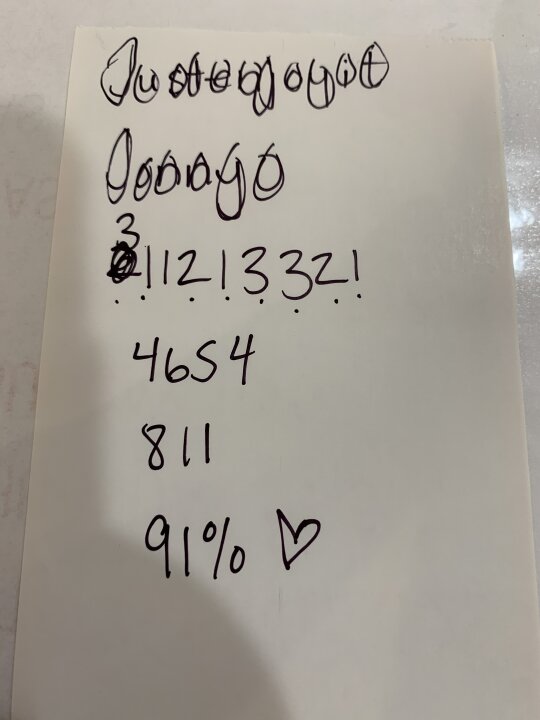 Justenjoyit
Jonnyo
311213321
4654
811
91% ♡